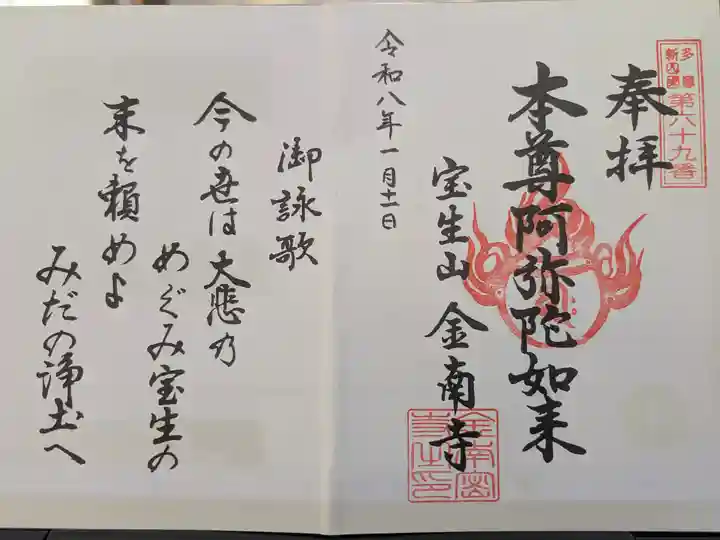 多摩
新四國
第六十九番
奉拝
本尊阿弥陀如来
宝生山 金南寺
令和八年一月十一日
御詠歌
今の世は大悲の
めぐみ宝生の
末を頼めよ
みだの浄土へ